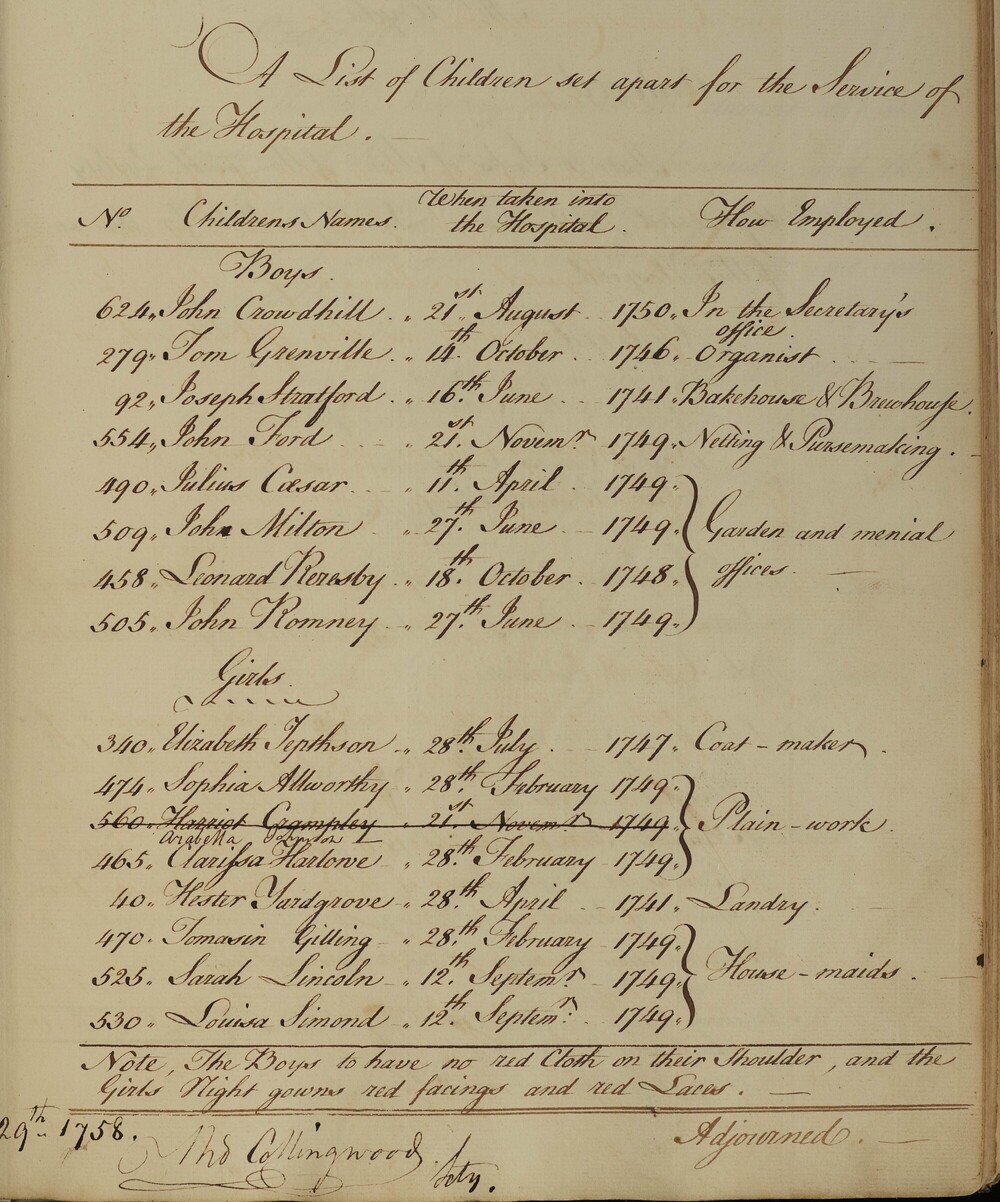 A List of Children set apart for the Service of
the Hospital.
No. Childrens Names. When taken into the Hospital. How Employed.
Boys.
624 John Crowdhill 21st August 1750 In the Secretary's office.
279 Tom Grenville 14th October 1746 Organist
92 Joseph Stratford 16th June 1741 Bakehouse & Brewhouse.
554 John Ford 21st Novemr 1749 Netting & Pursemaking.
490 Julius Cæsar 11th April 1749
509 John Milton 27th June 1749 Garden and menial
458 Leonard Reresby 18th October 1748 offices.
505 John Romney 27th June 1749
Girls
340 Elizabeth Jepthson 28th July 1747 Coat-maker.
474 Sophia Allworthy 28th February 1749
560 Harriot Crampley 21st Novemr 1749 Plain-work.
Arabella
465 Clarissa Harlowe 28th February 1749
40 Hester Yardgrove 28th April 1741 Landry.
470 Tomasin Gilling 28th February 1749
525 Sarah Lincoln 12th Septemr 1749 House-maids.
530 Louisa Simond 12th Septemr 1749
Note, The Boys to have no red Cloth on their Shoulder, and the
Girls Night gowns red facings and red Laces.
29th 1758.
Adjourned.
Collingwood
Scty.